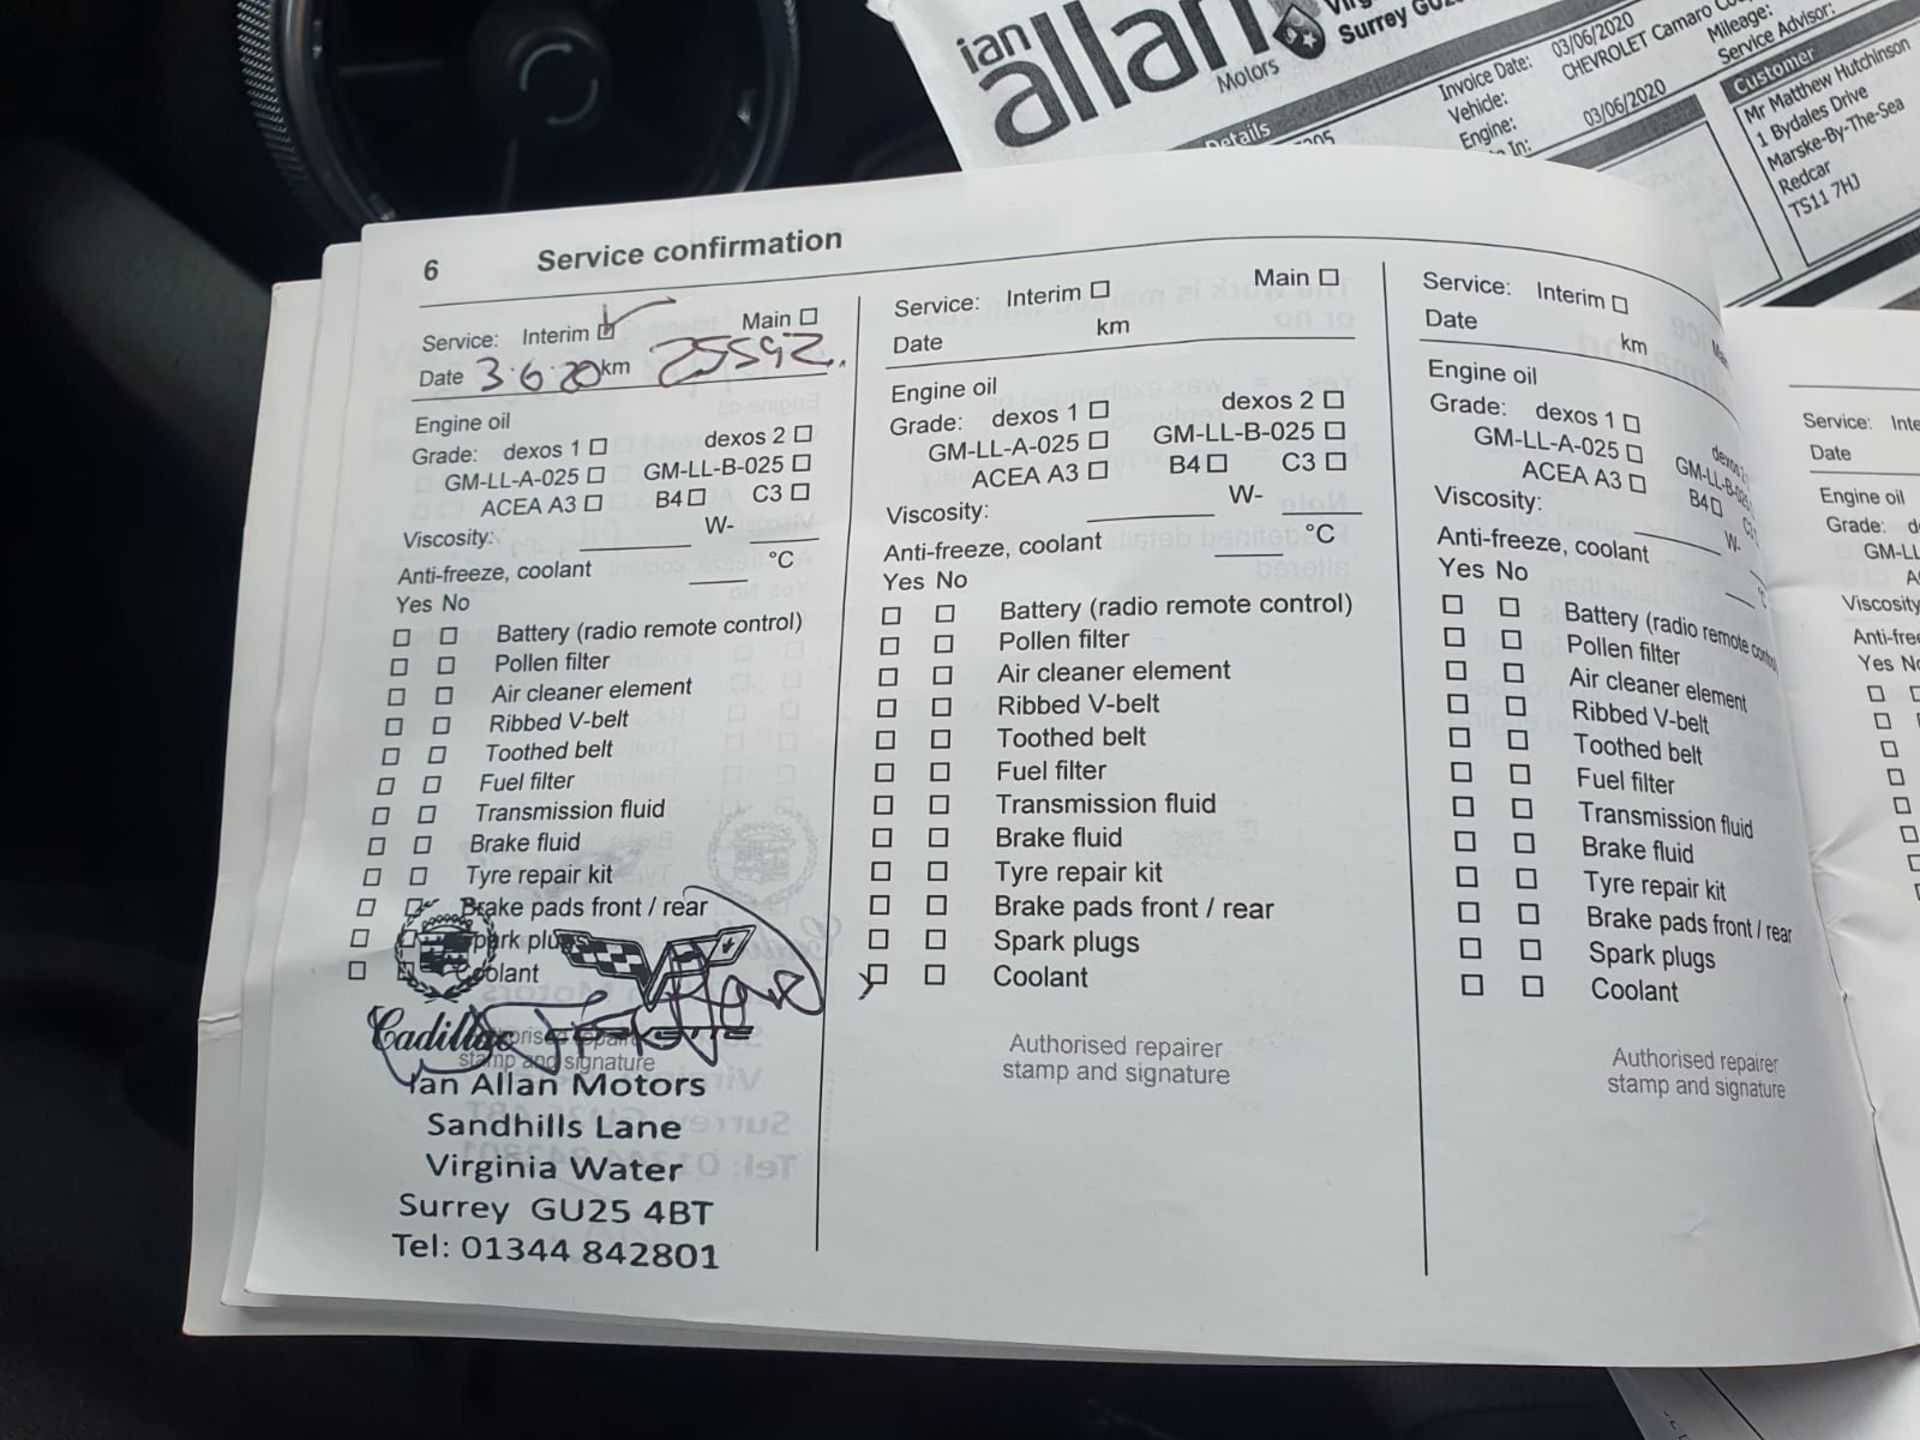 ian
allan
Motors
Surrey
Details
Invoice Date: 03/06/2020
Vehicle: CHEVROLET Camaro
Engine:
In: 03/06/2020
Mileage:
Service Advisor:
Customer
Mr Matthew Hutchinson
1 Bydales Drive
Marske-By-The-Sea
Redcar
TS11 7HJ
6 Service confirmation
Service: Interim Main
Date 3·6·20 km 25592.
Engine oil
Grade: dexos 1 dexos 2
GM-LL-A-025 GM-LL-B-025
ACEA A3 B4 C3
Viscosity: W-
Anti-freeze, coolant °C
Yes No
Battery (radio remote control)
Pollen filter
Air cleaner element
Ribbed V-belt
Toothed belt
Fuel filter
Transmission fluid
Brake fluid
Tyre repair kit
Brake pads front / rear
Spark plugs
Coolant
Cadillac
stamp and signature
Ian Allan Motors
Sandhills Lane
Virginia Water
Surrey GU25 4BT
Tel: 01344 842801
Service: Interim Main
Date km
Engine oil
Grade: dexos 1 dexos 2
GM-LL-A-025 GM-LL-B-025
ACEA A3 B4 C3
Viscosity: W-
Anti-freeze, coolant °C
Yes No
Battery (radio remote control)
Pollen filter
Air cleaner element
Ribbed V-belt
Toothed belt
Fuel filter
Transmission fluid
Brake fluid
Tyre repair kit
Brake pads front / rear
Spark plugs
Coolant
Authorised repairer
stamp and signature
Service: Interim Main
Date km
Engine oil
Grade: dexos 1 dexos 2
GM-LL-A-025 GM-LL-B-025
ACEA A3 B4 C3
Viscosity: W-
Anti-freeze, coolant °C
Yes No
Battery (radio remote control)
Pollen filter
Air cleaner element
Ribbed V-belt
Toothed belt
Fuel filter
Transmission fluid
Brake fluid
Tyre repair kit
Brake pads front / rear
Spark plugs
Coolant
Authorised repairer
stamp and signature
Service:
Date
Engine oil
Grade:
Viscosity
Yes